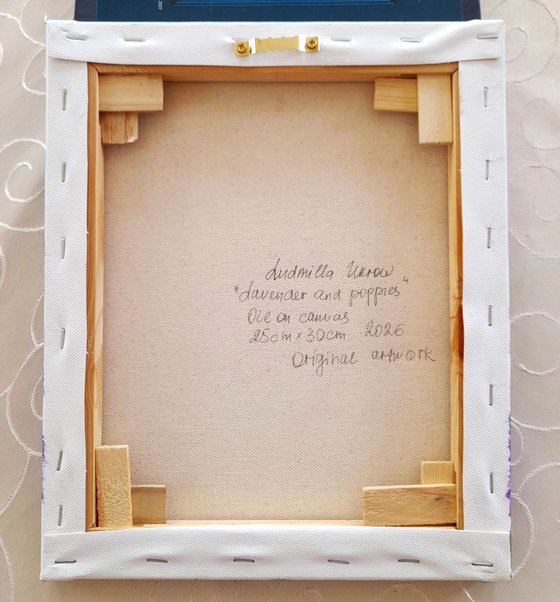 Ludmilla Ukrow
"Lavender and poppies"
Oil on canvas
25cm x 30cm 2026
Original artwork